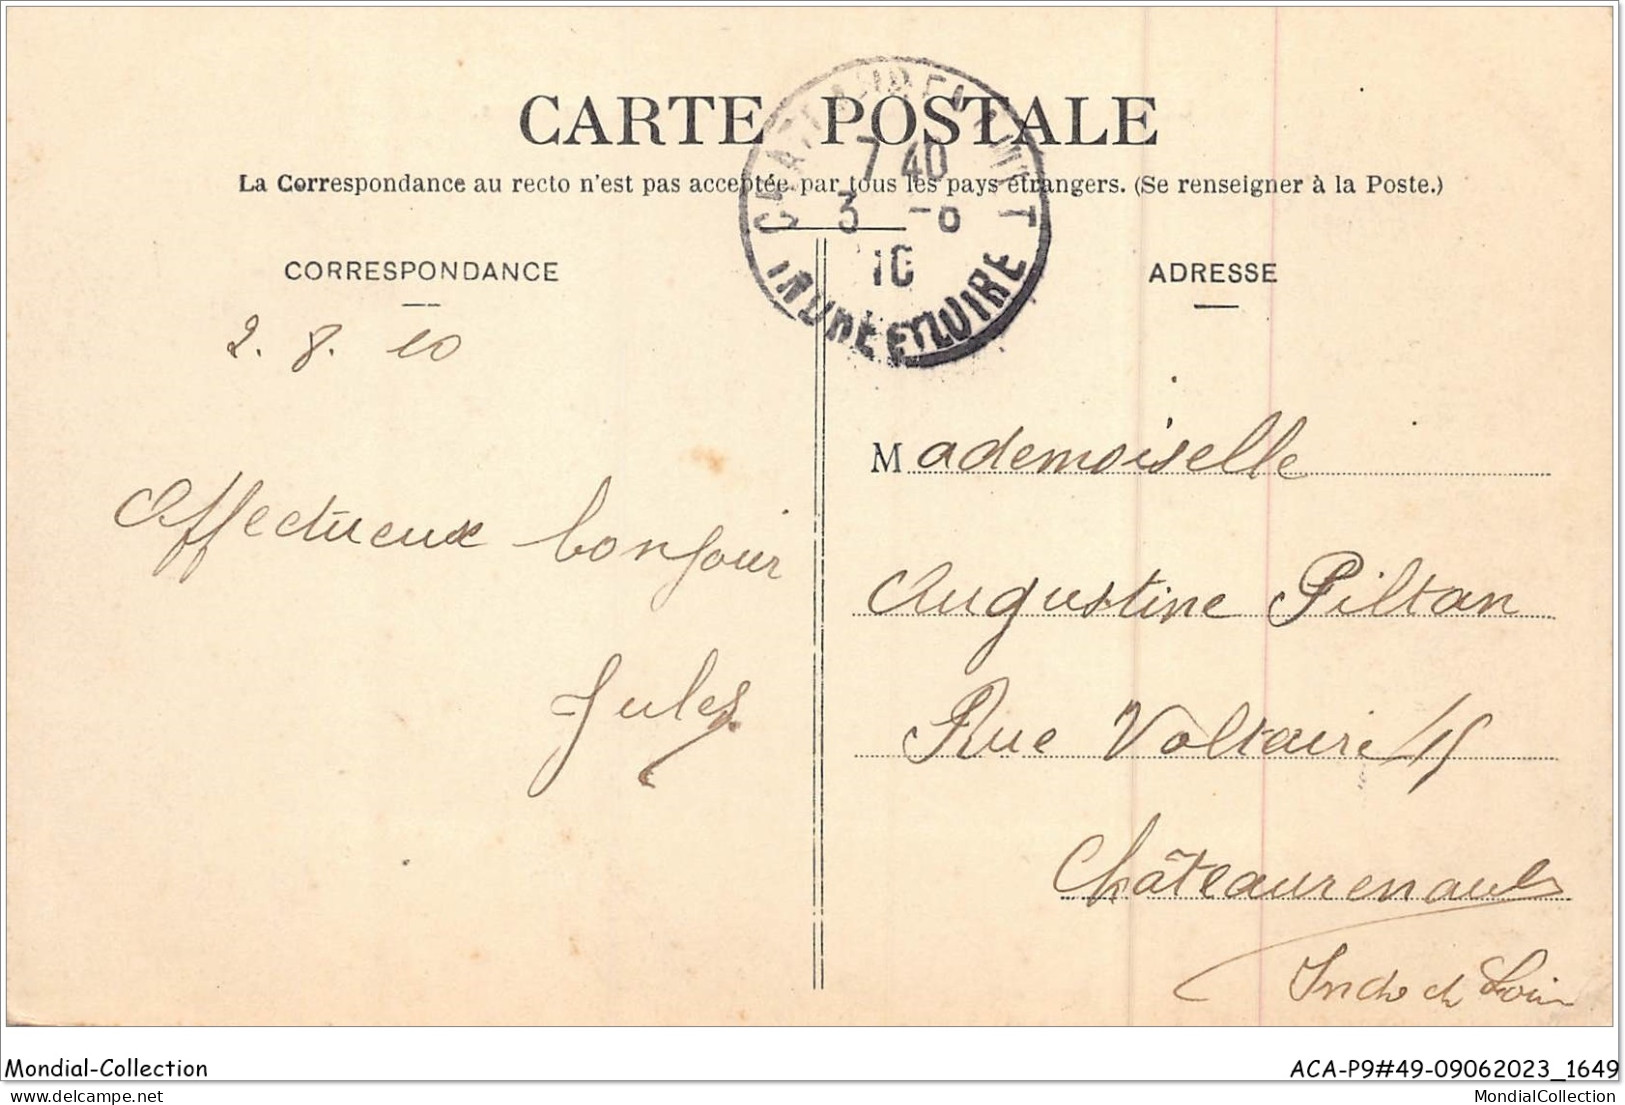 CARTE POSTALE
La Correspondance au recto n'est pas acceptée par tous les pays étrangers. (Se renseigner à la Poste.)
CHATEAURENAULT
7 40
3 -8
10
INDRE ET LOIRE
CORRESPONDANCE
2. 8. 10
Affectueux bonjour
Jules
ADRESSE
Mademoiselle
Augustine Piltan
Rue Voltaire 45
Châteaurenault
Indre et Loire
Mondial-Collection
ACA-P9#49-09062023_1649
MondialCollection
MondialCollection